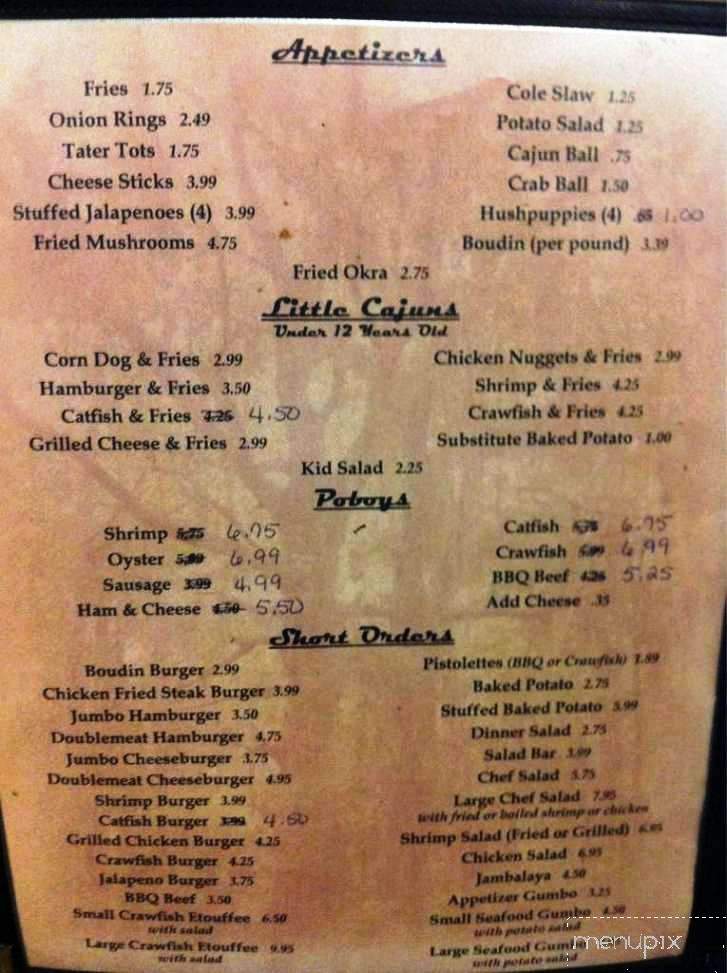 Appetizers
Fries 1.75
Onion Rings 2.49
Tater Tots 1.75
Cheese Sticks 3.99
Stuffed Jalapenoes (4) 3.99
Fried Mushrooms 4.75
Cole Slaw 1.25
Potato Salad 1.25
Cajun Ball .75
Crab Ball 1.50
Hushpuppies (4) 1.00
Boudin (per pound) 3.39
Fried Okra 2.75
Little Cajuns
Under 12 Years Old
Corn Dog & Fries 2.99
Hamburger & Fries 3.50
Catfish & Fries 4.25 4.50
Grilled Cheese & Fries 2.99
Chicken Nuggets & Fries 2.99
Shrimp & Fries 4.25
Crawfish & Fries 4.25
Substitute Baked Potato 1.00
Kid Salad 2.25
Poboys
Shrimp 5.75 6.75
Oyster 5.99 6.99
Sausage 3.99 4.99
Ham & Cheese 4.50 5.50
Catfish 5.75 6.75
Crawfish 5.99 6.99
BBQ Beef 4.25 5.25
Add Cheese .35
Short Orders
Boudin Burger 2.99
Chicken Fried Steak Burger 3.99
Jumbo Hamburger 3.50
Doublemeat Hamburger 4.75
Jumbo Cheeseburger 3.75
Doublemeat Cheeseburger 4.95
Shrimp Burger 3.99
Catfish Burger 3.99 4.50
Grilled Chicken Burger 4.25
Crawfish Burger 4.25
Jalapeno Burger 3.75
BBQ Beef 3.50
Small Crawfish Etouffee 6.50
with salad
Large Crawfish Etouffee 9.95
with salad
Pistolettes (BBQ or Crawfish) 1.89
Baked Potato 2.75
Stuffed Baked Potato 5.99
Dinner Salad 2.75
Salad Bar 3.99
Chef Salad 5.75
Large Chef Salad 7.95
with fried or boiled shrimp or chicken
Shrimp Salad (Fried or Grilled) 6.95
Chicken Salad 6.95
Jambalaya 4.50
Appetizer Gumbo 3.25
Small Seafood Gumbo 4.50
with potato salad
Large Seafood
with potato salad
menupix